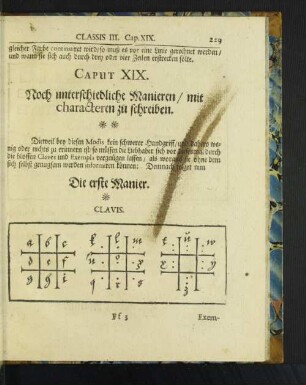 CLASSIS III. Cap. XIX. 229
gleicher Farbe continuirt wird/so muß es vor eine Linie gerechnet werden/
und wann sie sich auch durch drey oder vier Zeilen erstrecken solte.
CAPUT XIX.
Noch unterschiedliche Manieren / mit
characteren zu schreiben.
* *
Dieweil bey diesen Modis kein schwerer Handgriff/ und dahero we-
nig oder nichts zu erinnern ist/so müssen die Liebhaber sich vor dißmal durch
die blossen Claves und Exempla vergnügen lassen/ als woraus sie ohne dem
sich selbst genugsam werden informiren können: Demnach folget nun
Die erste Manier.
*
CLAVIS.
a b c k l m t ü w
d e f n o p x y
g h i q r s z
Ff 3 Exem-